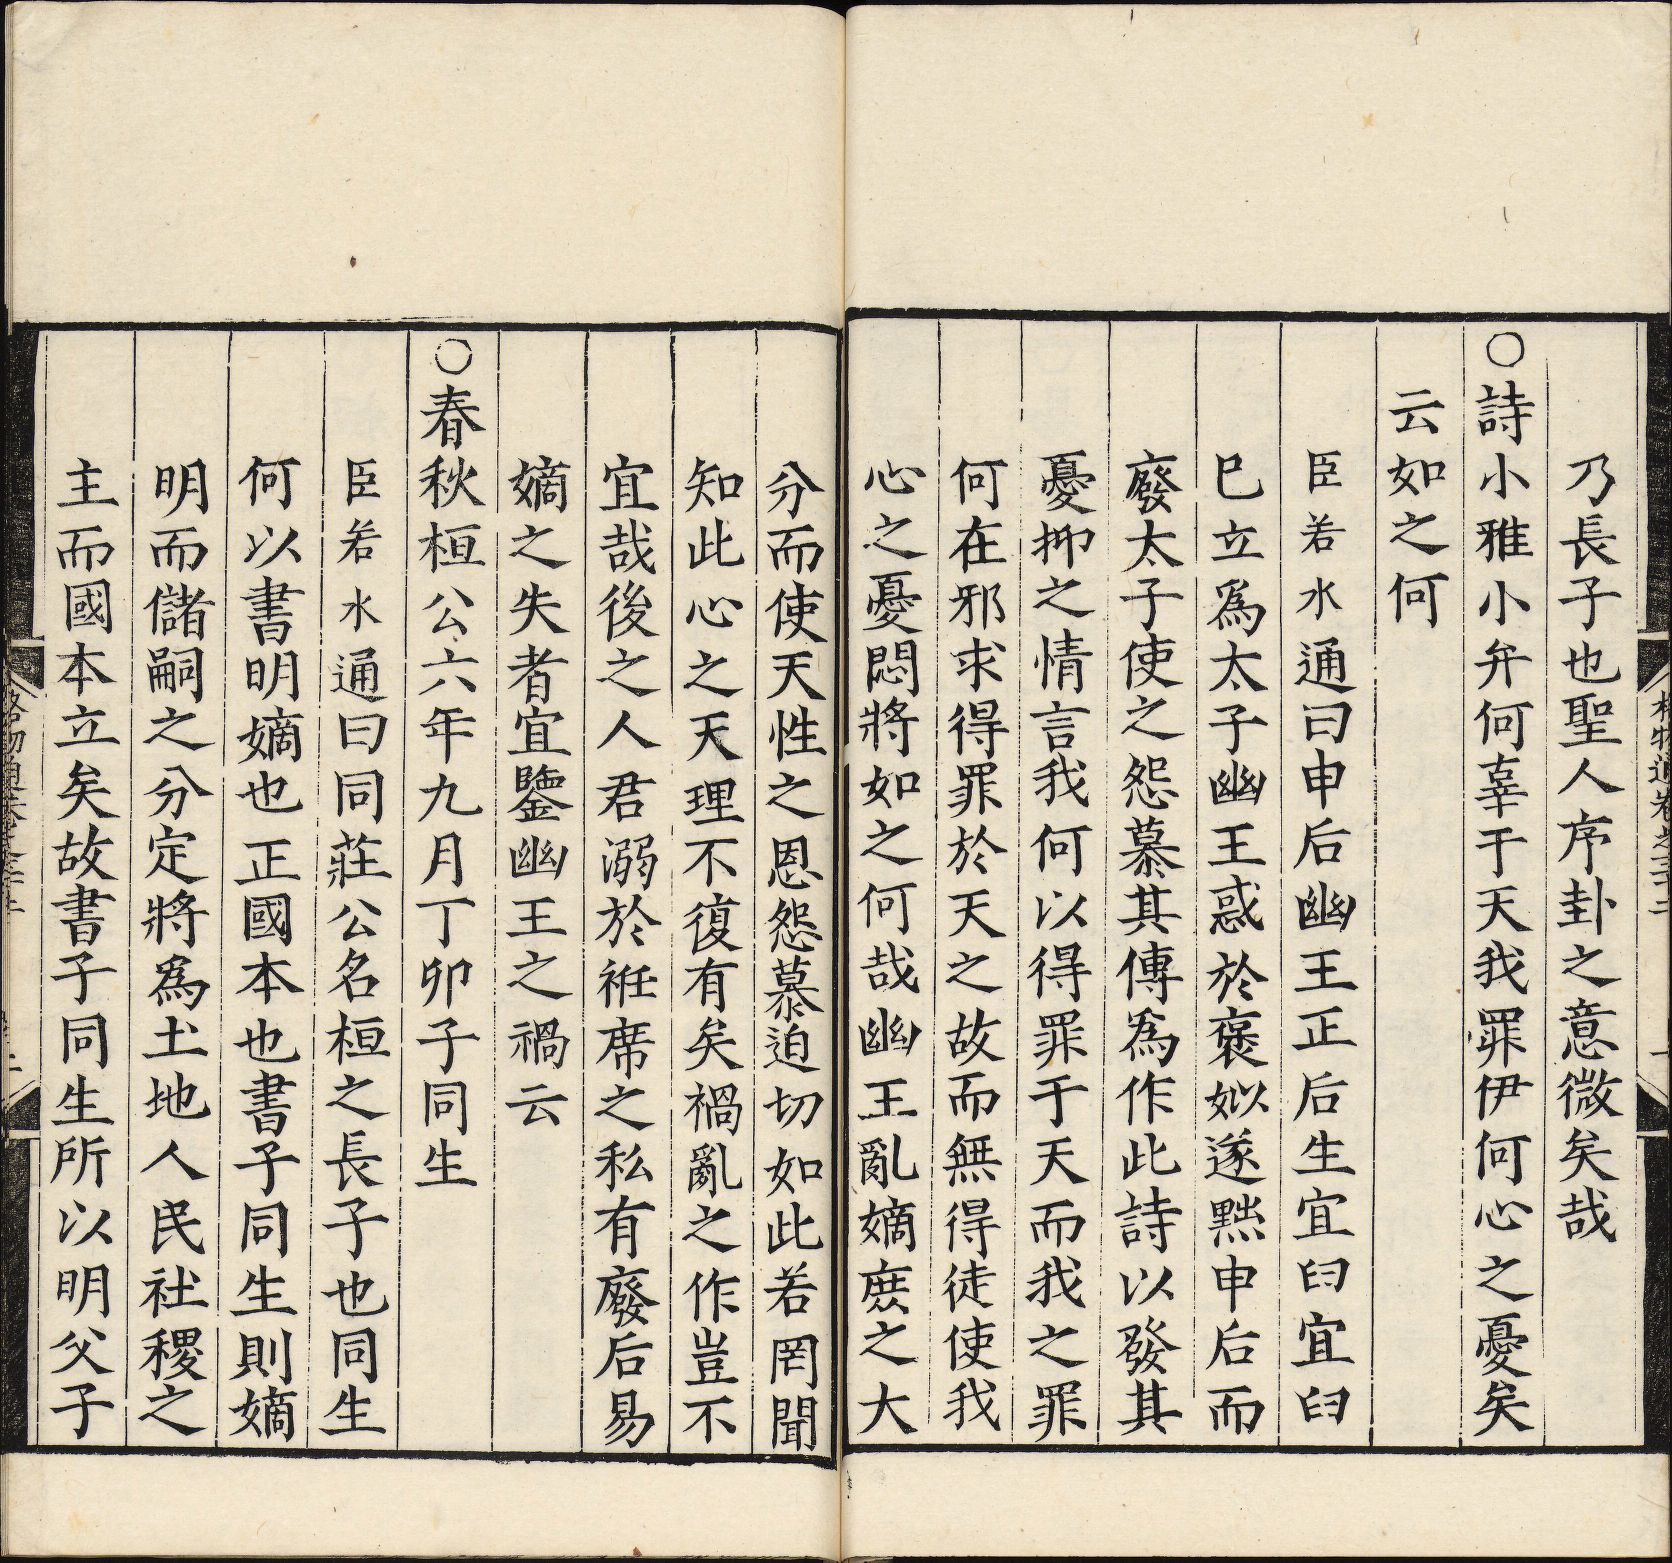 乃長子也聖人序卦之意微矣哉
○詩小雅小弁何辜于天我罪伊何心之憂矣
云如之何
臣若水通曰申后幽王正后生宜臼宜臼
已立爲太子幽王惑於褒姒遂黜申后而
廢太子使之怨慕其傳爲作此詩以發其
憂抑之情言我何以得罪于天而我之罪
何在邪求得罪於天之故而無得徒使我
心之憂悶將如之何哉幽王亂嫡庶之大
分而使天性之恩怨慕迫切如此若罔聞
知此心之天理不復有矣禍亂之作豈不
宜哉後之人君溺於袵席之私有廢后易
嫡之失者宜鑒幽王之禍云
○春秋桓公六年九月丁卯子同生
臣若水通曰同莊公名桓之長子也同生
何以書明嫡也正國本也書子同生則嫡
明而儲嗣之分定將爲土地人民社稷之
主而國本立矣故書子同生所以明父子